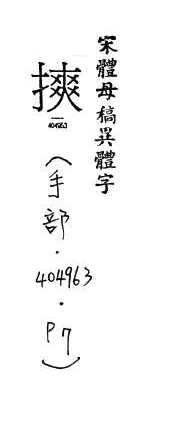 宋體母稿異體字
摤
404963
(手部·404963·P7)